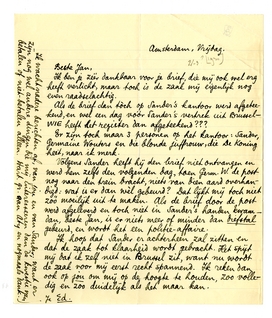 Amsterdam, Vrijdag.
Beste Jan,
Ik ben je zéér dankbaar voor je brief, die mij ook wel erg
heeft verlicht, maar toch is de zaak mij eigenlijk nog
even raadselachtig.
Als de brief dan tòch op Sander's kantoor werd afgete-
kend, en wel een dag vóór Sander's vertrek uit Brussel-
WIE heeft het register dan afgeteekend???
Er zijn toch maar 3 personen op het kantoor: Sander,
Germaine Wouters en die blonde juffrouw, die de Koning
heet, naar ik merk.
Volgens Sander heeft hij den brief niet ontvangen en
werd hem zelfs den volgenden dag, toen Germ. W. de post
nog naar den trein bracht, niets van dien aard overhan-
digd: wat is er dan wel gebeurd? Dat lijkt mij toch niet
zoo moeilijk uit te maken. Als de brief door de post
werd afgeleverd en toch niet in Sander's handen kwam
dan, Beste Jan, is er niet meer of minder dan diefstal
gebeurd, en wordt het een politie-affaire.
Ik hoop dat Sander er achterheen zal zitten en
dat de zaak tot klaarheid wordt gebracht. Het spijt
mij dat ik zelf niet in Brussel zit, want nu wordt
de zaak voor mij erg spannend. Ik reken dan
ook op jou om mij op de hoogte te houden, zoo volle-
dig en zoo duidelijk als het maar kan.
Je Ed.
Ik wacht nader berichten af, van jou en van Sander, want er
zijn nog wel andere dingen die mij